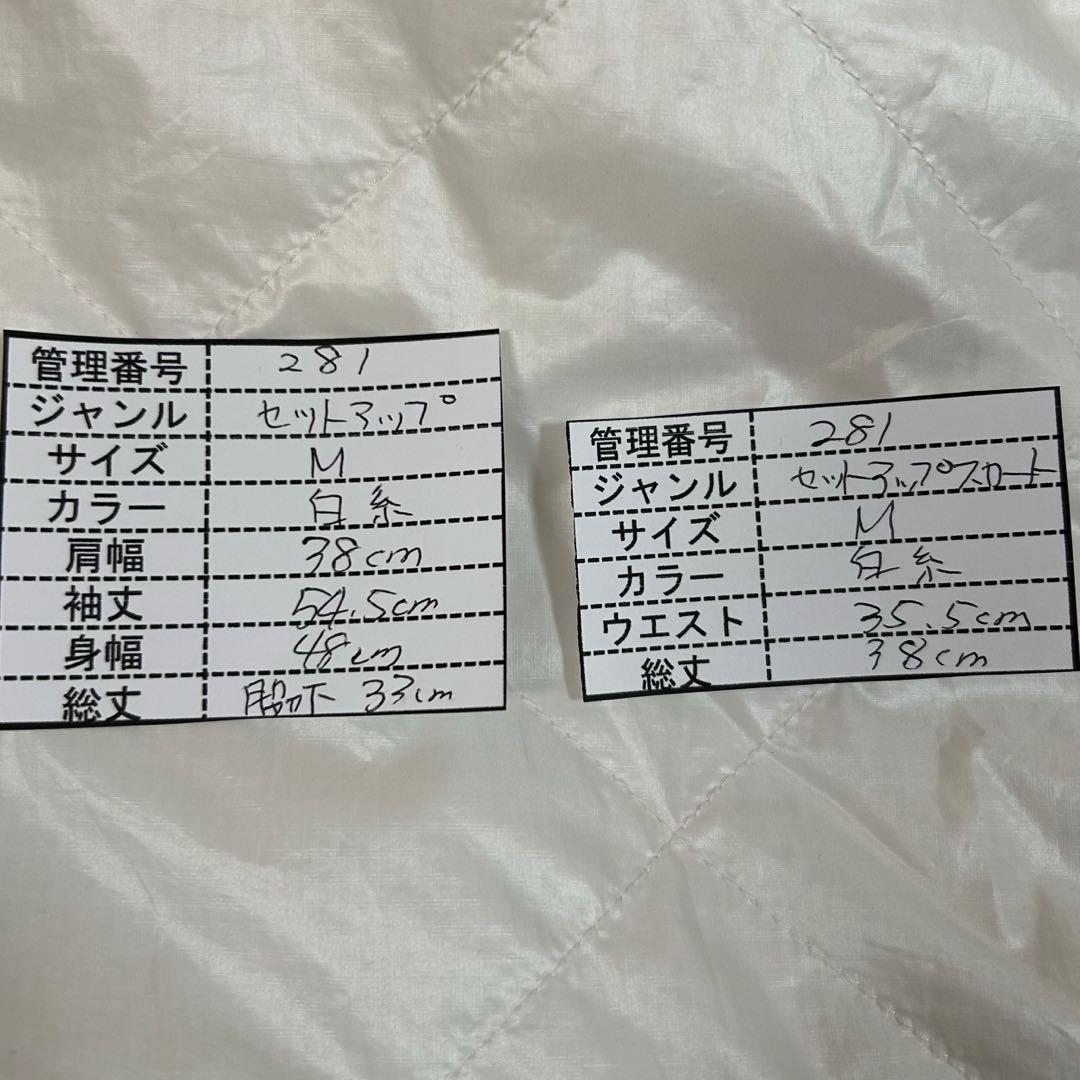 管理番号 281
ジャンル セットアップ
サイズ M
カラー 白系
肩幅 38cm
袖丈 54.5cm
身幅 48cm
総丈 脇下 33cm
管理番号 281
ジャンル セットアップスカート
サイズ M
カラー 白系
ウエスト 35.5cm
総丈 38cm